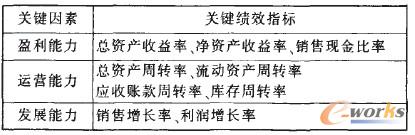 关键因素 关键绩效指标
盈利能力 总资产收益率、净资产收益率、销售现金比率
运营能力 总资产周转率、流动资产周转率
应收账款周转率、库存周转率
发展能力 销售增长率、利润增长率
e-works